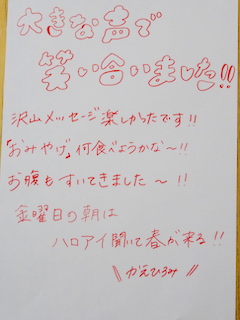 大きな声で
笑い合いました!!
沢山メッセージ楽しかったです!!
「おみやげ」何食べようかな~!!
お腹もすいてきました~!!
金曜日の朝は
ハロアイ聞いて春が来る!!
\\ かえひろみ //